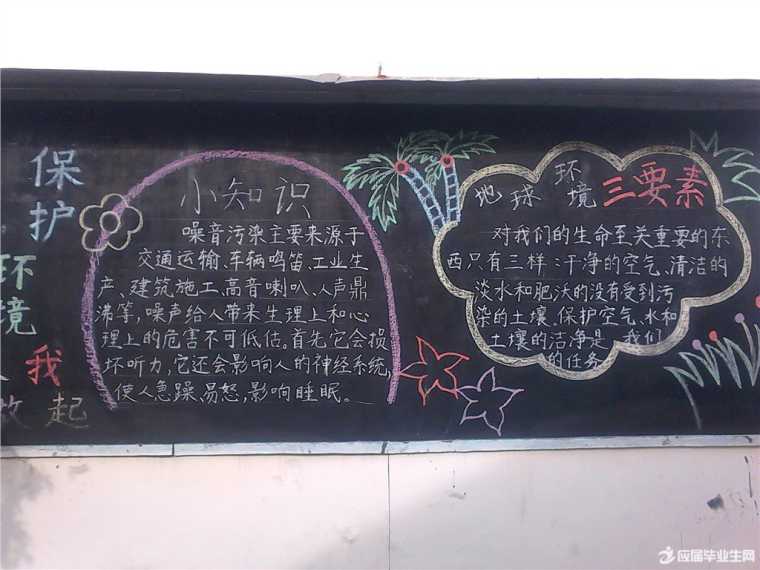 保护
环境
我
做起
小知识
噪音污染主要来源于
交通运输、车辆鸣笛、工业生
产、建筑施工、高音喇叭、人声鼎
沸等，噪声给人带来生理上和心
理上的危害不可低估。首先它会损
坏听力，它还会影响人的神经系统，
使人急躁、易怒，影响睡眠。
地球环境三要素
对我们的生命至关重要的东
西只有三样：干净的空气、清洁的
淡水和肥沃的没有受到污
染的土壤。保护空气、水和
土壤的洁净是我们
的任务
应届毕业生网